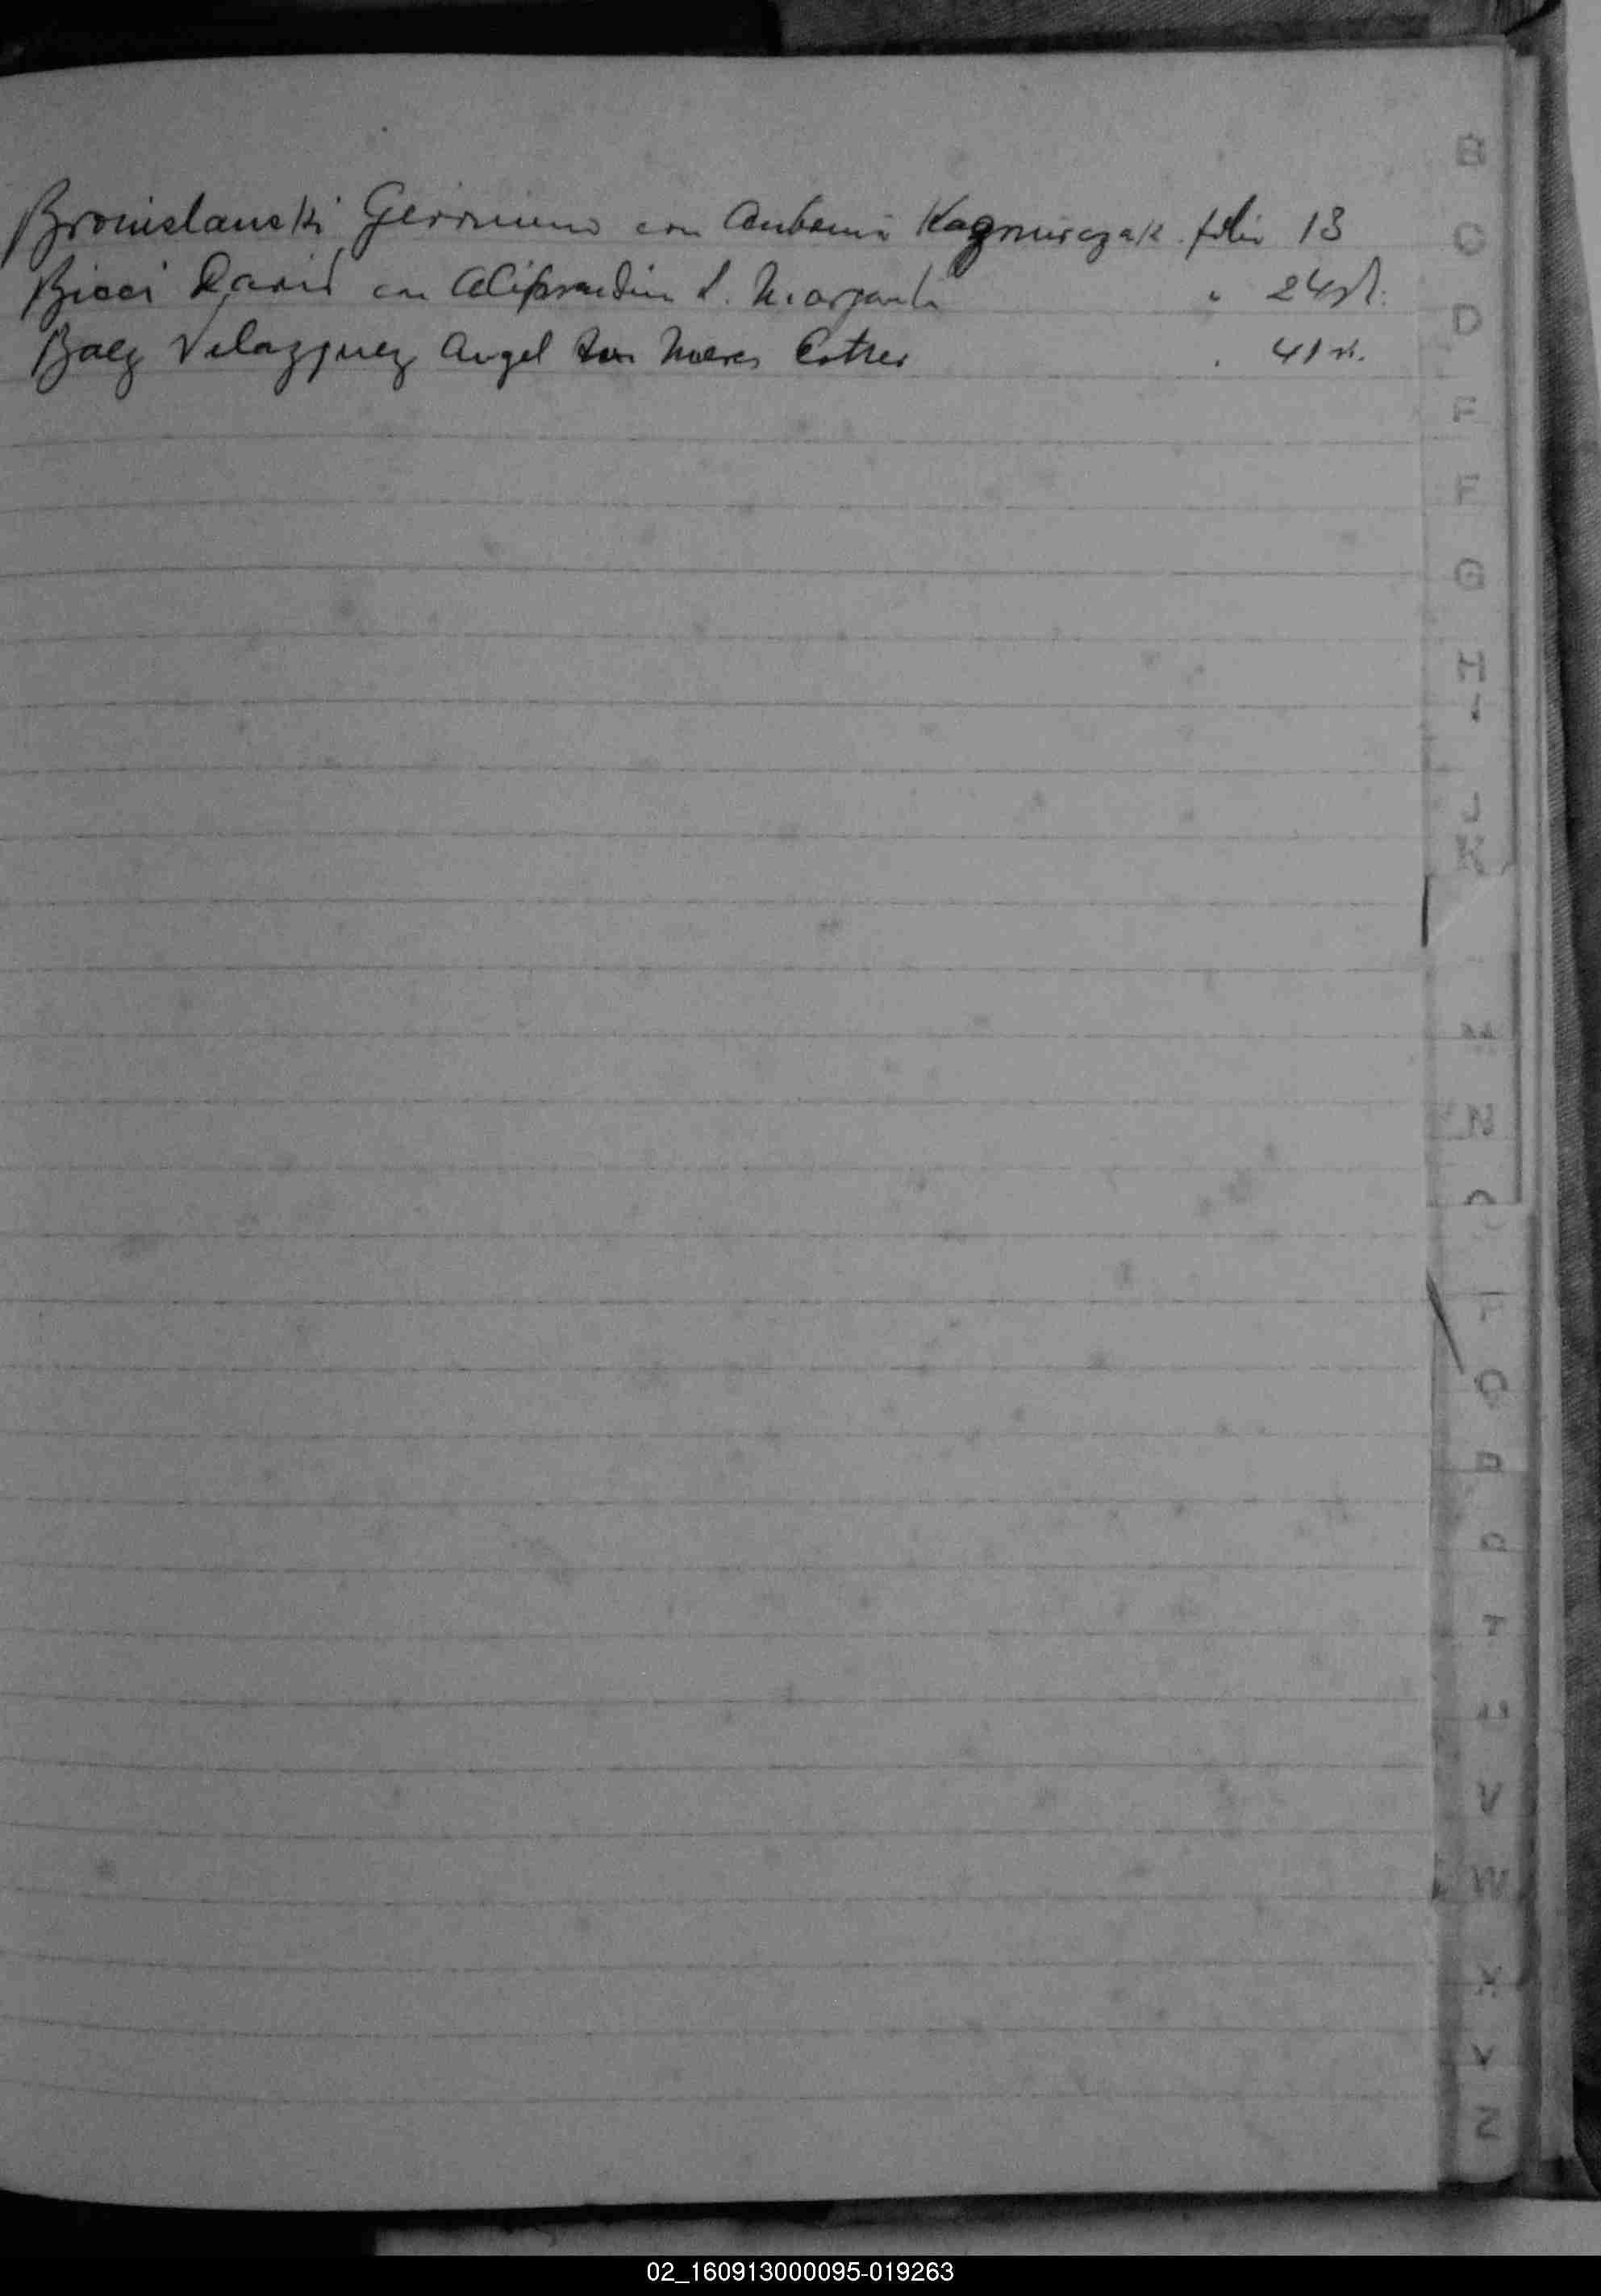 Bronislauski Geronimo con Antonia Kagmierczak folio 13
Bicci David con Aliprandini L. Margarita " 24 vt.
Baez Velazquez Angel con Mieres Esther " 41 vt.
B
C
D
E
F
G
H
I
J
K
M
N
O
P
Q
R
S
T
U
V
W
X
Y
Z
02_160913000095-019263